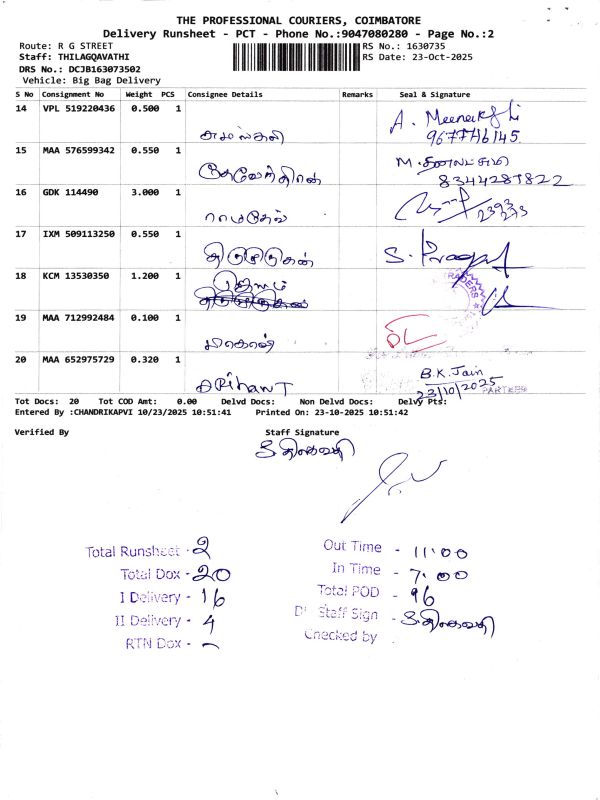 THE PROFESSIONAL COURIERS, COIMBATORE
Delivery Runsheet - PCT - Phone No.:9047080280 - Page No.:2
Route: R G STREET
RS No.: 1630735
Staff: THILAGQAVATHI
RS Date: 23-Oct-2025
DRS No.: DCJB163073502
Vehicle: Big Bag Delivery
S No Consignment No Weight PCS Consignee Details Remarks Seal & Signature
14 VPL 519220436 0.500 1 A. Meenakshi
15 MAA 576599342 0.550 1
8344287822
16 GDK 114490 3.000 1 ராமதேவ்
17 IXM 509113250 0.550 1 திருமுருகன்
18 KCM 13530350 1.200 1
TRADERS
19 MAA 712992484 0.100 1
20 MAA 652975729 0.320 1 ARihanT B.K. Jain
23/10/2025
PARTNER
Tot Docs: 20 Tot COD Amt: 0.00 Delvd Docs: Non Delvd Docs: Delvy Pts:
Entered By :CHANDRIKAPVI 10/23/2025 10:51:41 Printed On: 23-10-2025 10:51:42
Verified By Staff Signature
Total Runsheet - 2
Total Dox - 20
I Delivery - 16
II Delivery - 4
RTN Dox -
Out Time - 11:00
In Time - 7:00
Total POD - 96
Staff Sign -
Checked by